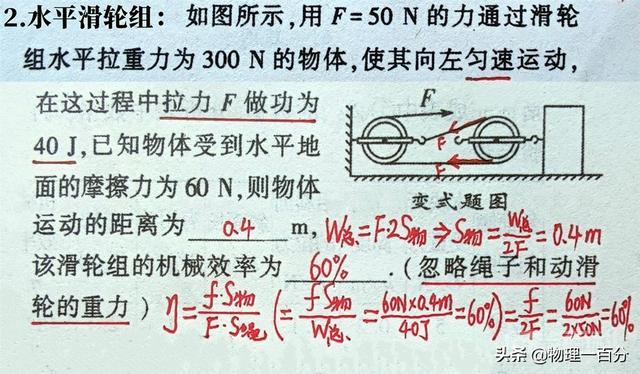 2.水平滑轮组：如图所示,用F=50 N的力通过滑轮
组水平拉重力为300 N的物体,使其向左匀速运动,
在这过程中拉力F做功为
40 J,已知物体受到水平地
面的摩擦力为60 N,则物体
运动的距离为 0.4 m,
该滑轮组的机械效率为 60% .(忽略绳子和动滑
轮的重力)
F
F
F
变式题图
W总=F·2S物⇒S物=W总/2F=0.4m
η=f·S物/F·S绳(=f·S物/W总=60N×0.4m/40J=60%)=f/2F=60N/2×50N=60%
头条 @物理一百分